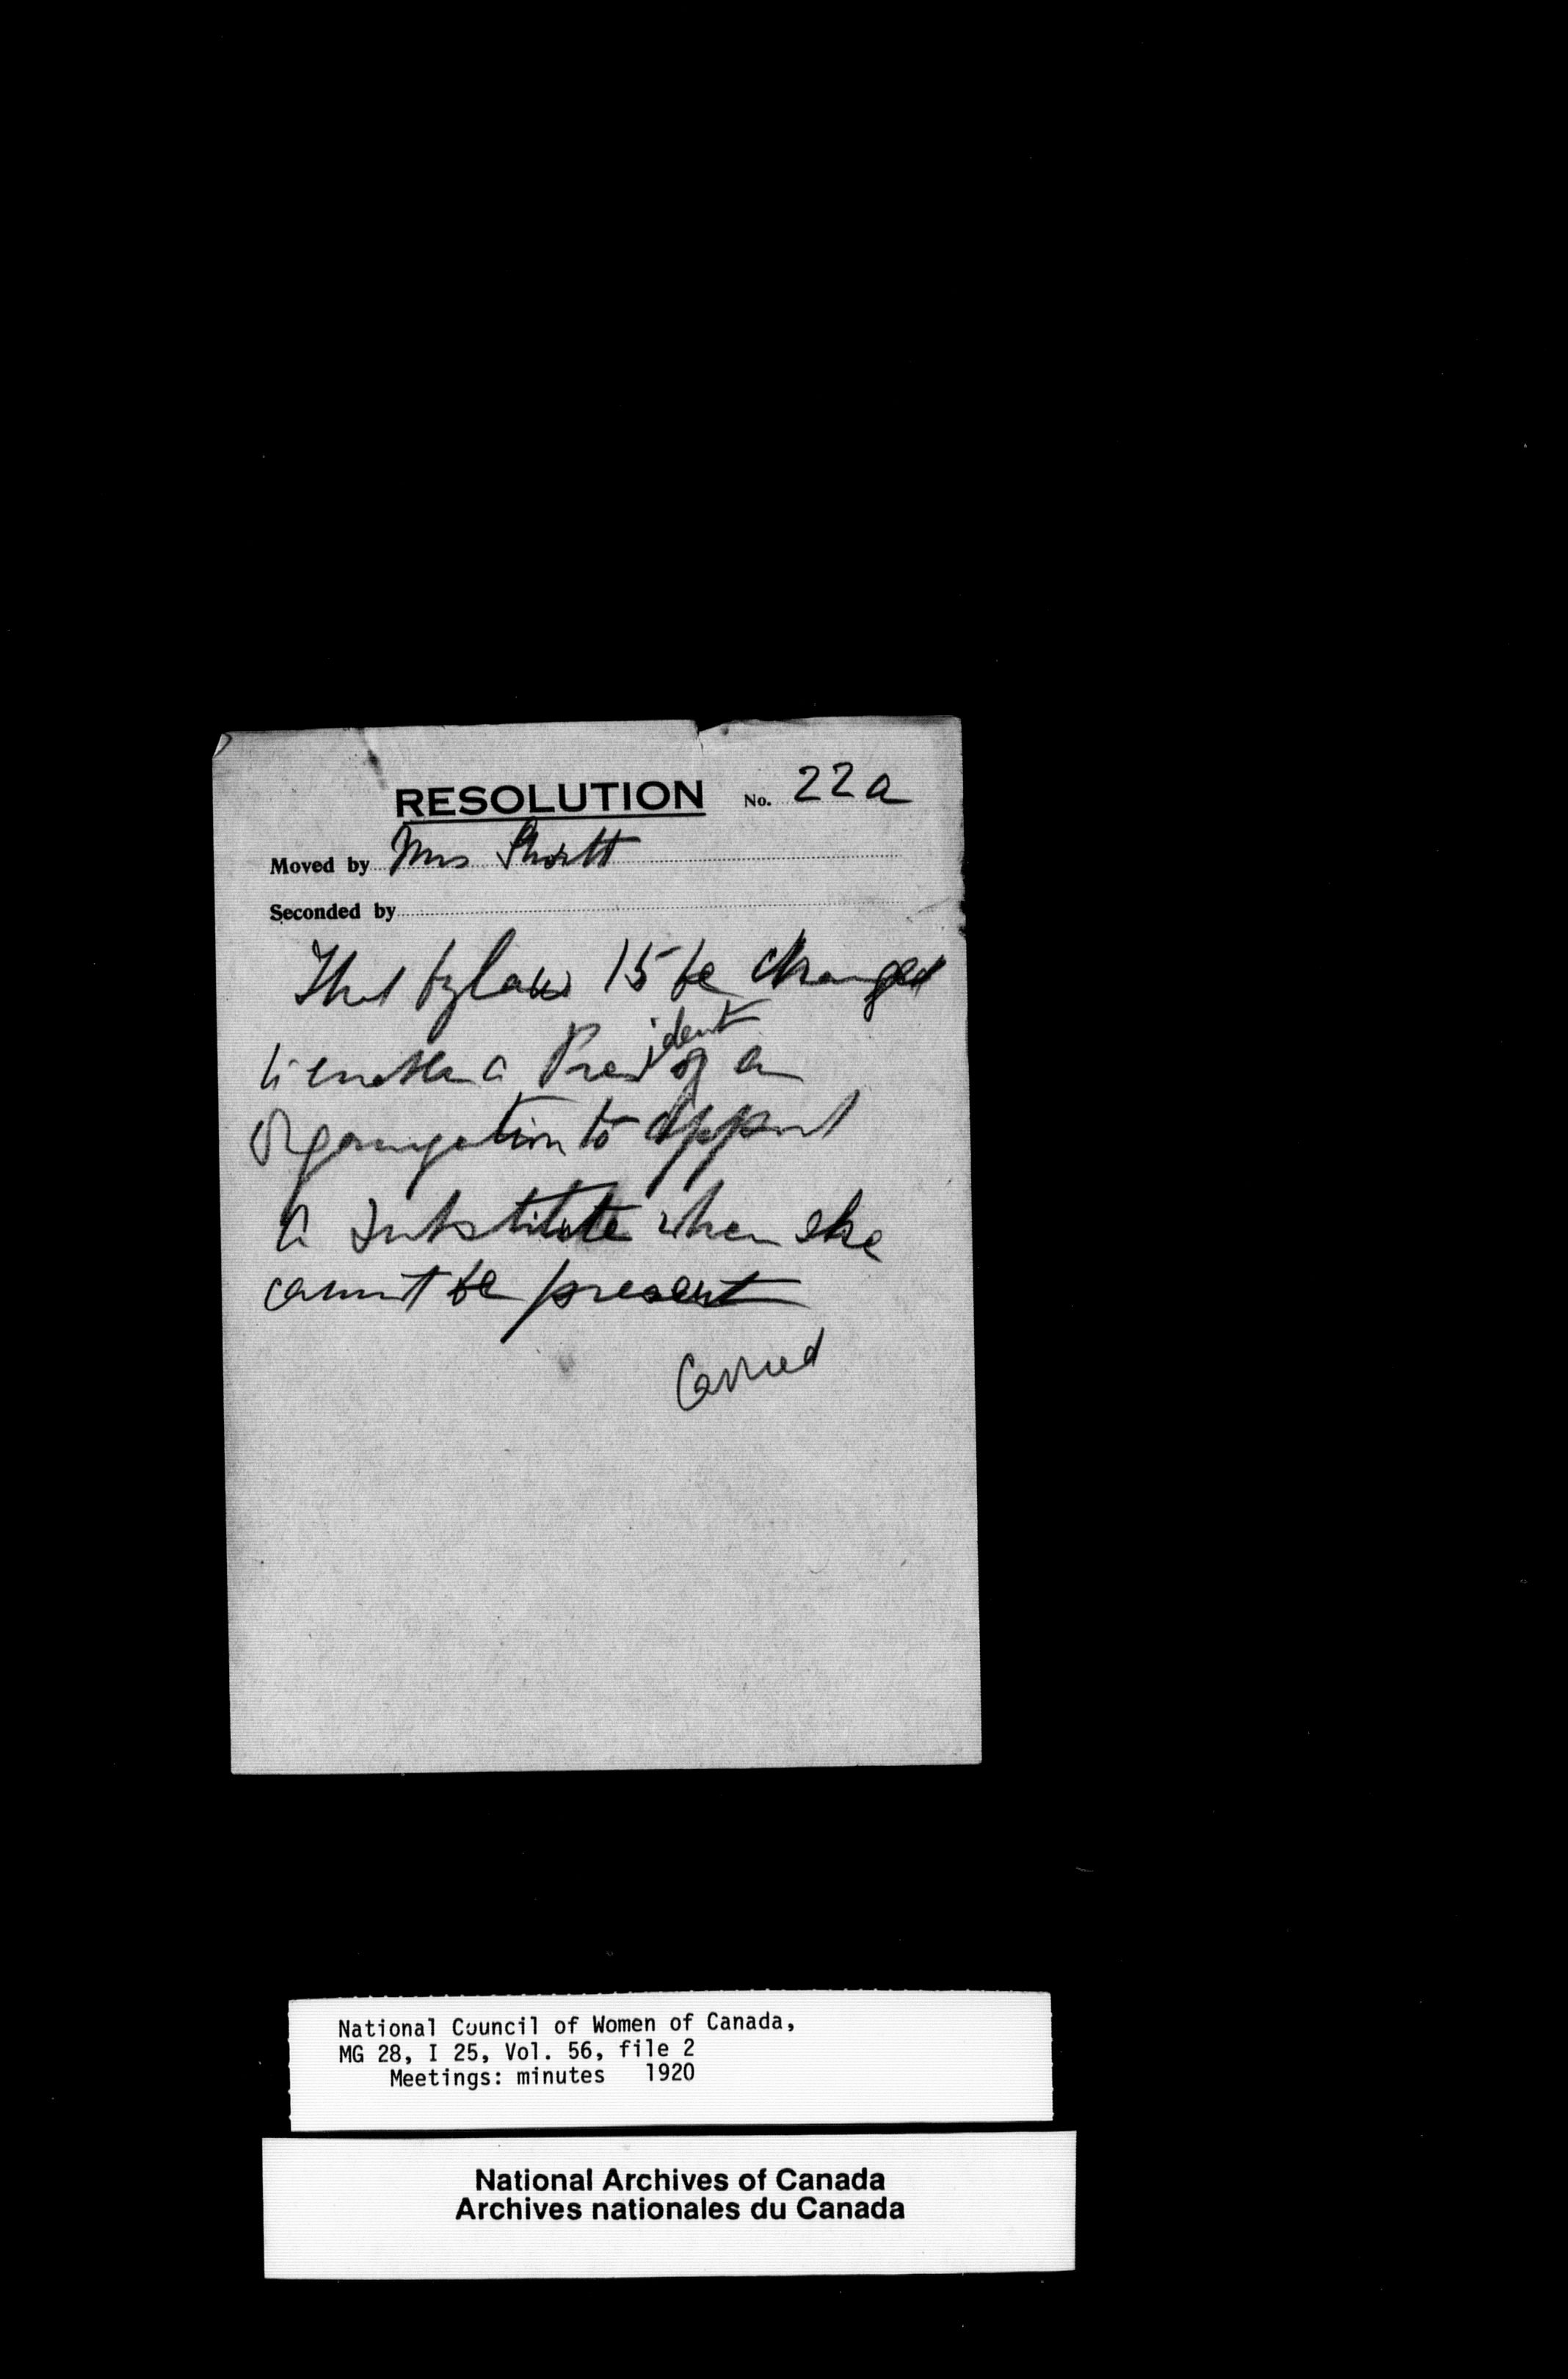 RESOLUTION No. 22a
Moved by Mrs Shortt
Seconded by
That bylaw 15 be changed
to enable a President of an
Organization to appoint
a substitute when she
cannot be present
Carried
National Council of Women of Canada,
MG 28, I 25, Vol. 56, file 2
Meetings: minutes 1920
National Archives of Canada
Archives nationales du Canada